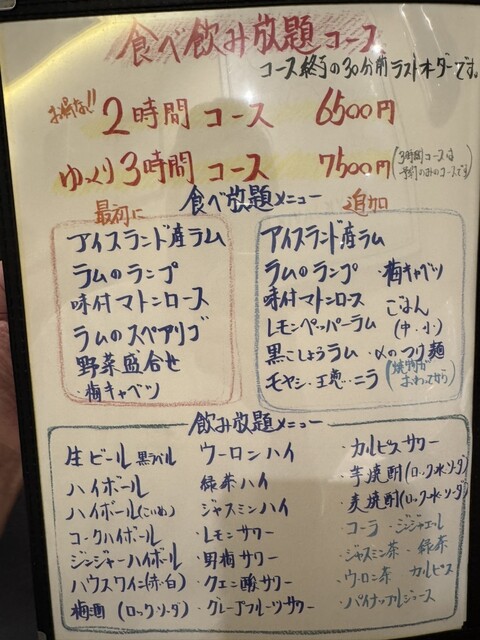 食べ飲み放題コース
コース終了の30分前ラストオーダーです。
お得な!!
2時間コース 6500円
ゆっくり3時間コース 7500円
(3時間コースは
予約のみのコースです)
食べ放題メニュー
最初に
アイスランド産ラム
ラムのランプ
味付マトンロース
ラムのスペアリブ
野菜盛合せ
・梅キャベツ
追加
アイスランド産ラム
ラムのランプ ・梅キャベツ
味付マトンロース ごはん
レモンペッパーラム (中・小)
黒こしょうラム ・〆のつけ麺
モヤシ・玉葱・ニラ (焼物が
おわってから)
飲み放題メニュー
生ビール 黒ラベル
ハイボール
ハイボール(こいめ)
コークハイボール
ジンジャーハイボール
ハウスワイン(赤・白)
梅酒 (ロック・ソーダ)
ウーロンハイ
緑茶ハイ
ジャスミンハイ
・レモンサワー
・男梅サワー
・クエン酸サワー
・グレープフルーツサワー
・カルピスサワー
・芋焼酎(ロック・水・ソーダ)
・麦焼酎(ロック・水・ソーダ)
・コーラ ・ジンジャエール
・ジャスミン茶 ・緑茶
・ウーロン茶 カルピス
・パイナップルジュース